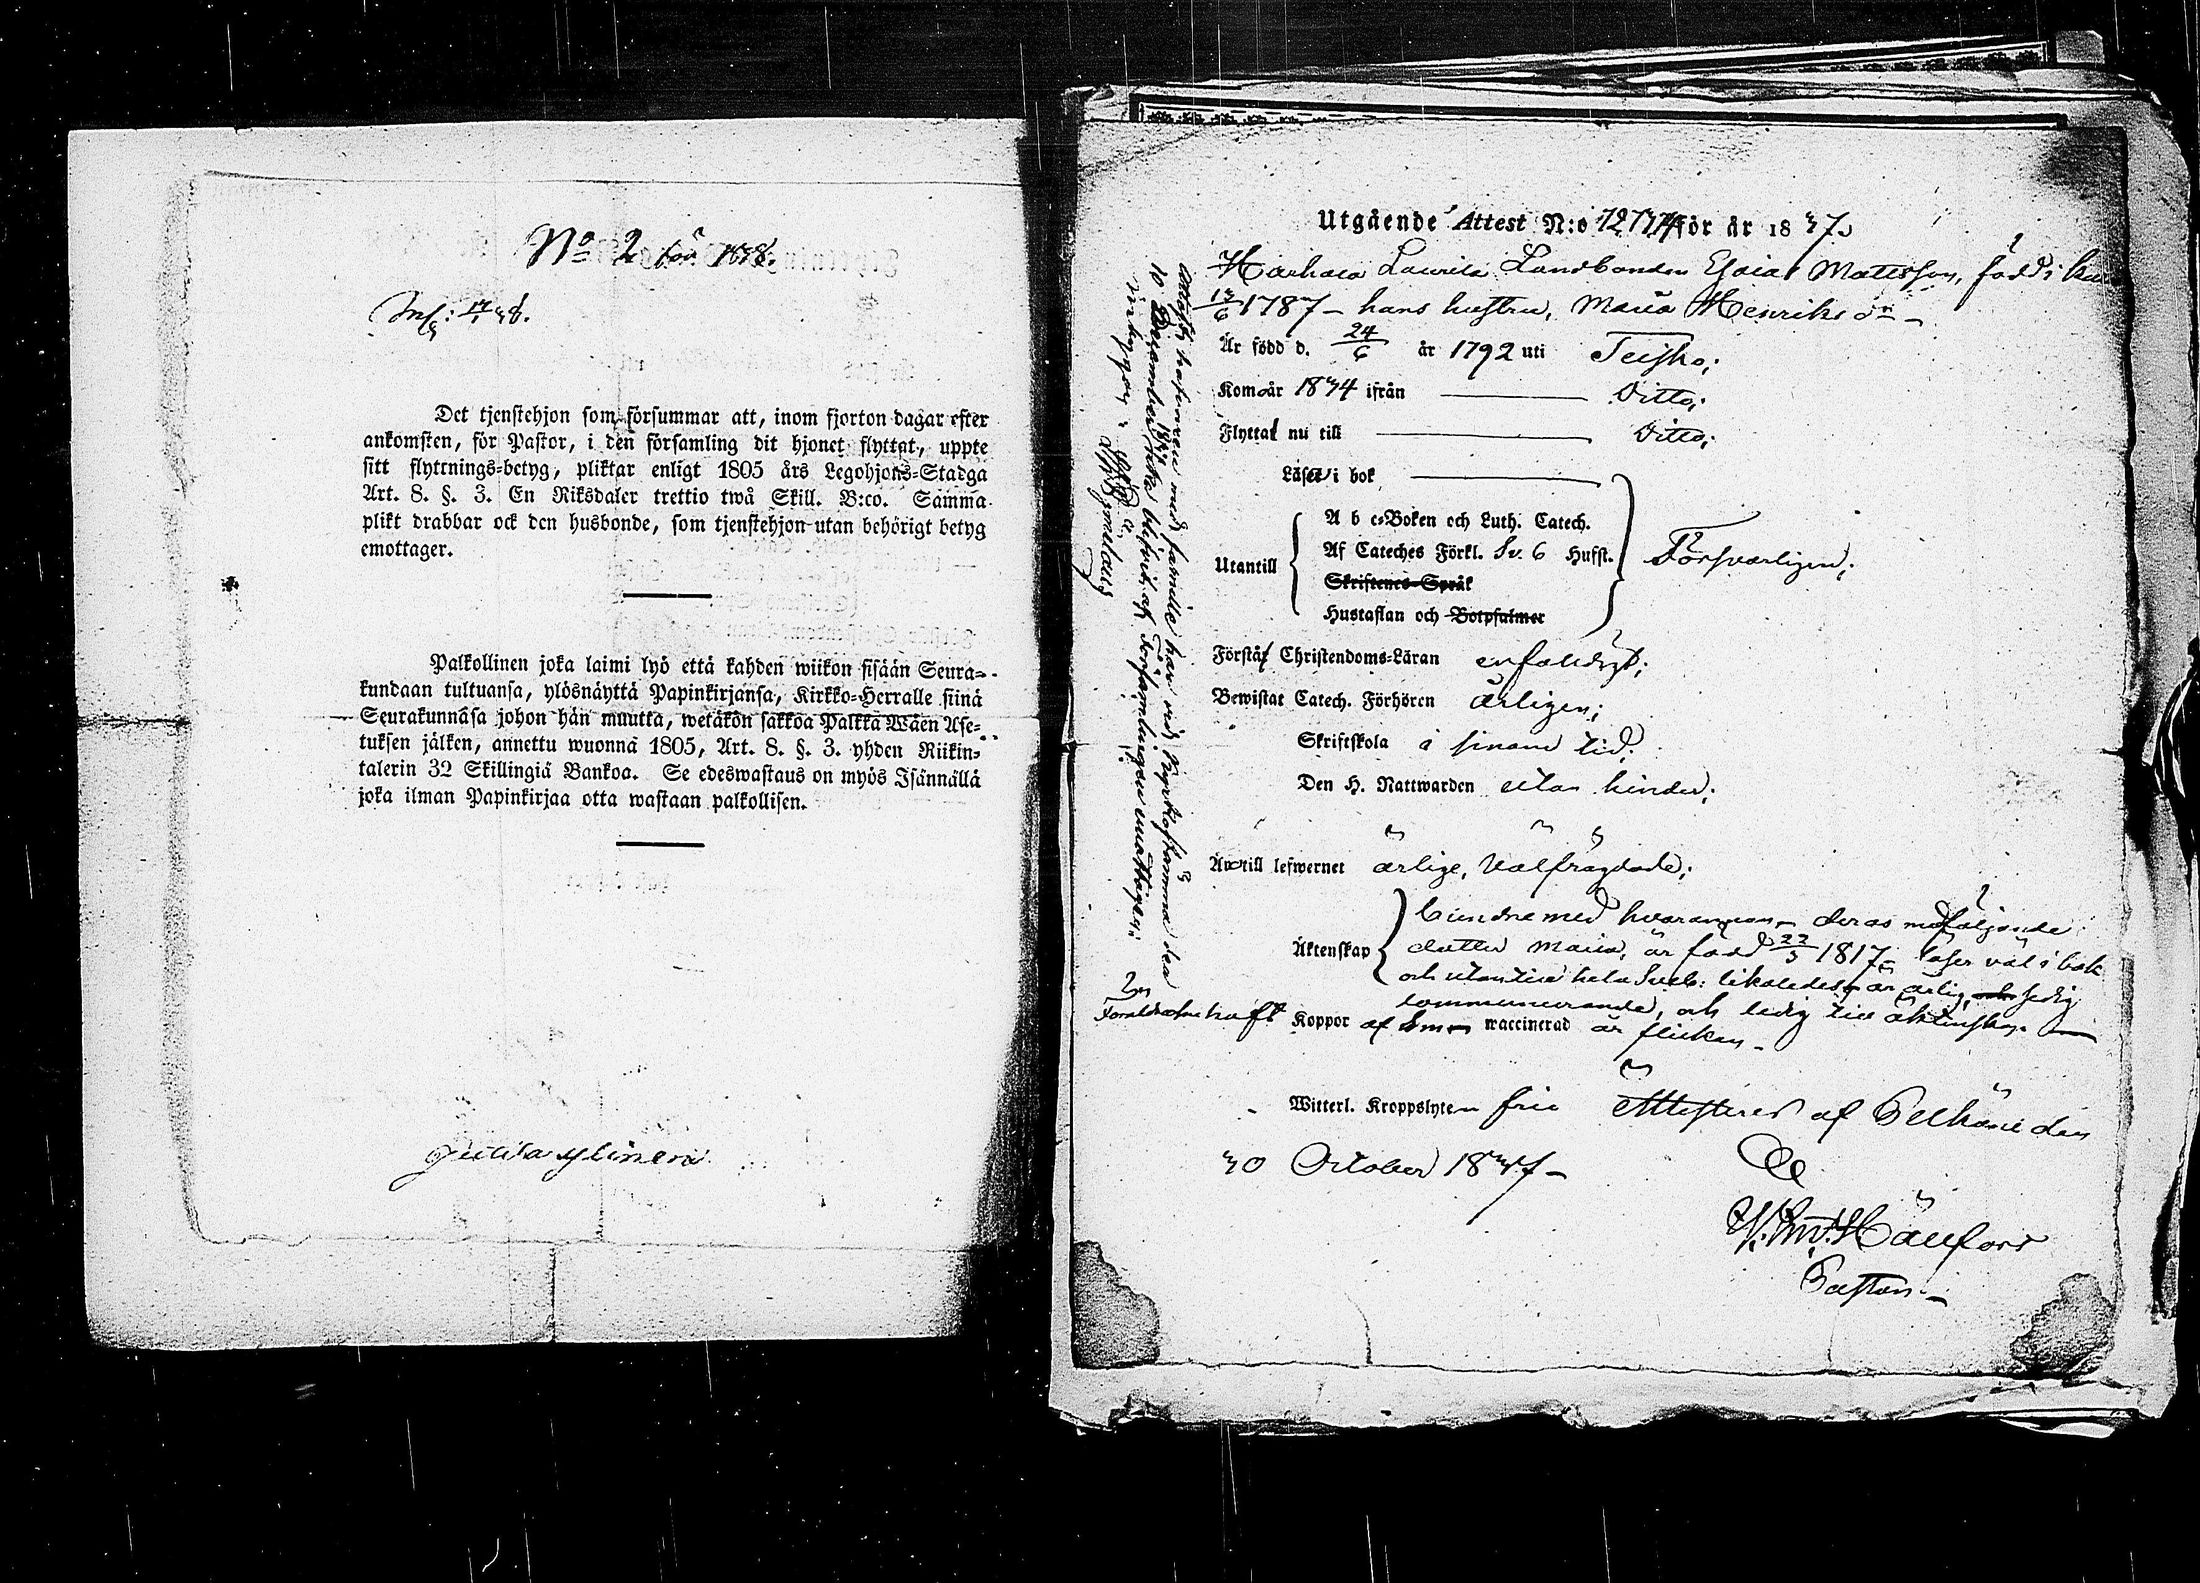 No 2 för 1838.
Inf: 17/1 38.
Det tjenstehjon som försummar att, inom fjorton dagar efter
ankomsten, för Pastor, i den församling dit hjonet flyttat, uppte
sitt flyttnings-betyg, pliktar enligt 1805 års Legohjons-Stadga
Art. 8. §. 3. En Riksdaler trettio twå Skill. B:co. Samma
plikt drabbar ock den husbonde, som tjenstehjon utan behörigt betyg
emottager.
Palkollinen joka laimi lyö että kahden wiikon sisään Seura-
kundaan tultuansa, ylösnäyttä Papinkirjansa, Kirkko-Herralle siinä
Seurakunnasa johon hän muutta, wetäkön sakkoa Palkka Wäen Ase-
tuksen jälken, annettu wuonna 1805, Art. 8. §. 3. yhden Riikin-
talerin 32 Skillingiä Bankoa. Se edeswastaus on myös Isännällä
joka ilman Papinkirjaa otta wastaan palkollisen.
Utgående Attest N:o för år 1837.
Laurila Landbonden Esaias Mattsson, född i
13/6 1787 – hans hustru, Maria Henriks dr –
Är född d. 24/6 år 1792 uti Teisko;
Kom år 1834 ifrån Ditto;
Flytta nu till Ditto;
Läser i bok
Utantill
A b c-Boken och Luth. Catech.
Af Cateches Förkl. Sv. 6 Husst.
Skriftenes-Språk
Hustaflan och Botpsalmer
Försvarligen;
Förstå Christendoms-Läran enfaldigt;
Bewistat Catech. Förhören ärligen;
Skriftskola i sinom tid;
Den H. Nattwarden utan hinder;
Äro till lefwernet ärlige, välfrägdade;
Äktenskap
bundne med hvarannan – deras medföljande
dotter Maria, är född 22/3 1817 – läser väl i bok
och utantill hela Sveb: likaledes är ärlig, och sedig
communicerande, och ledig till äktenskap. –
Koppor af dem waccinerad är flickan –
Witterl. Kroppslyten frie Attesteras af Pelkäne den
30 October 1837 –
Pastor. –
Attesten hafvaren med familie har vid Kyrkostämma den
10 December 1837 icke blifvit af Församlingen emottagen